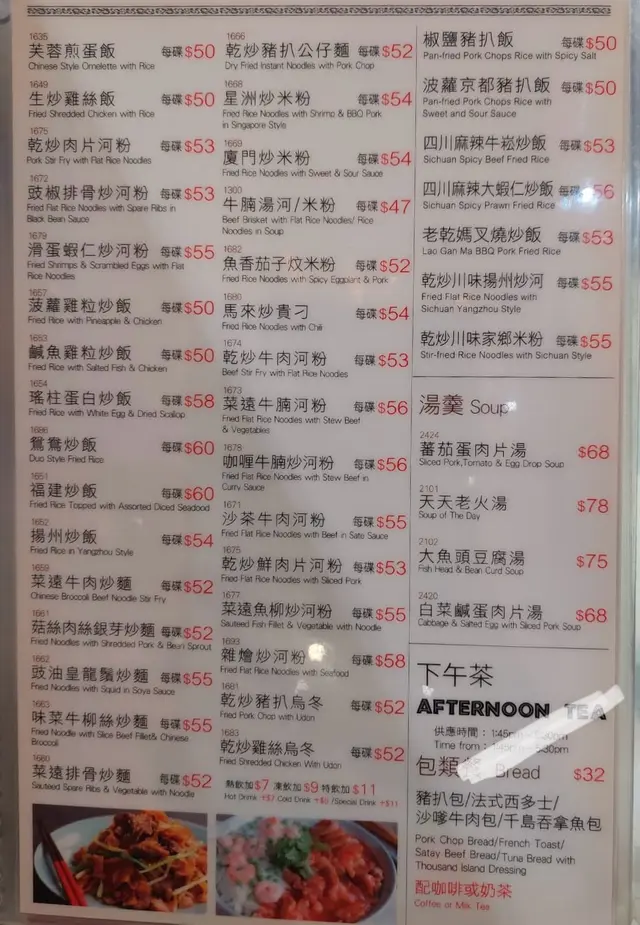 1635
芙蓉煎蛋飯 每碟$50
Chinese Style Omelette with Rice
1649
生炒雞絲飯 每碟$50
Fried Shredded Chicken with Rice
1675
乾炒肉片河粉 每碟$53
Pork Stir Fry with Flat Rice Noodles
1672
豉椒排骨炒河粉 每碟$53
Fried Flat Rice Noodles with Spare Ribs in
Black Bean Sauce
1679
滑蛋蝦仁炒河粉 每碟$55
Fried Shrimps & Scrambled Eggs with Flat
Rice Noodles
1657
菠蘿雞粒炒飯 每碟$50
Fried Rice with Pineapple & Chicken
1653
鹹魚雞粒炒飯 每碟$50
Fried Rice with Salted Fish & Chicken
1654
瑤柱蛋白炒飯 每碟$58
Fried Rice with White Egg & Dried Scallop
1686
鴛鴦炒飯 每碟$60
Duo Style Fried Rice
1651
福建炒飯 每碟$60
Fried Rice Topped with Assorted Diced Seadood
1652
揚州炒飯 每碟$54
Fried Rice in Yangzhou Style
1659
菜遠牛肉炒麵 每碟$52
Chinese Broccoli Beef Noodle Stir Fry
1661
菇絲肉絲銀芽炒麵 每碟$52
Fried Noodles with Shredded Pork & Bean Sprout
1662
豉油皇龍鬚炒麵 每碟$55
Fried Noodles with Squid in Soya Sauce
1663
味菜牛柳絲炒麵 每碟$55
Fried Noodle with Slice Beef Fillet& Chinese
Broccoli
1660
菜遠排骨炒麵 每碟$52
Sauteed Spare Ribs & Vegetable with Noodle
1666
乾炒豬扒公仔麵 每碟$52
Dry Fried Instant Noodles with Pork Chop
1668
星洲炒米粉 每碟$54
Fried Rice Noodles with Shrimp & BBQ Pork
in Singapore Style
1669
廈門炒米粉 每碟$54
Fried Rice Noodles with Sweet & Sour Sauce
1300
牛腩湯河/米粉 每碟$47
Beef Brisket with Flat Rice Noodles/ Rice
Noodles in Soup
1682
魚香茄子炆米粉 每碟$52
Fried Rice Noodles with Spicy Eggplant & Pork
1680
馬來炒貴刁 每碟$54
Fried Rice Noodles with Chili
1674
乾炒牛肉河粉 每碟$53
Beef Stir Fry with Flat Rice Noodles
1673
菜遠牛腩河粉 每碟$56
Fried Flat Rice Noodles with Stew Beef
& Vegetables
1678
咖喱牛腩炒河粉 每碟$56
Fried Flat Rice Noodles with Stew Beef in
Curry Sauce
1671
沙茶牛肉河粉 每碟$55
Fried Flat Rice Noodles with Beef in Sate Sauce
1675
乾炒鮮肉片河粉 每碟$53
Fried Flat Rice Noodles with Sliced Pork
1677
菜遠魚柳炒河粉 每碟$55
Sauteed Fish Fillet & Vegetable with Noodle
1693
雜燴炒河粉 每碟$58
Fried Flat Rice Noodles with Seafood
1681
乾炒豬扒烏冬 每碟$52
Fried Pork Chop with Udon
1683
乾炒雞絲烏冬 每碟$52
Fried Shredded Chicken With Udon
熱飲加$7 凍飲加$9 特飲加$11
Hot Drink +$7 Cold Drink +$9 /Special Drink +$11
椒鹽豬扒飯 每碟$50
Pan-fried Pork Chops Rice with Spicy Salt
波蘿京都豬扒飯 每碟$50
Pan-fried Pork Chops Rice with
Sweet and Sour Sauce
四川麻辣牛崧炒飯 每碟$53
Sichuan Spicy Beef Fried Rice
四川麻辣大蝦仁炒飯 每碟$56
Sichuan Spicy Prawn Fried Rice
老乾媽叉燒炒飯 每碟$53
Lao Gan Ma BBQ Pork Fried Rice
乾炒川味揚州炒河 每碟$55
Fried Flat Rice Noodles with
Sichuan Yangzhou Style
乾炒川味家鄉米粉 每碟$55
Stir-fried Rice Noodles with Sichuan Style
湯羹 Soup
2424
蕃茄蛋肉片湯 $68
Sliced Pork,Tomato & Egg Drop Soup
2101
天天老火湯 $78
Soup of The Day
2102
大魚頭豆腐湯 $75
Fish Head & Bean Curd Soup
2420
白菜鹹蛋肉片湯 $68
Cabbage & Salted Egg with Sliced Pork Soup
下午茶
AFTERNOON TEA
供應時間： 1:45pm
Time from : 1:45pm
包類 Bread $32
豬扒包/法式西多士/
沙嗲牛肉包/千島吞拿魚包
Pork Chop Bread/French Toast/
Satay Beef Bread/Tuna Bread with
Thousand Island Dressing
配咖啡或奶茶
Coffee or Milk Tea